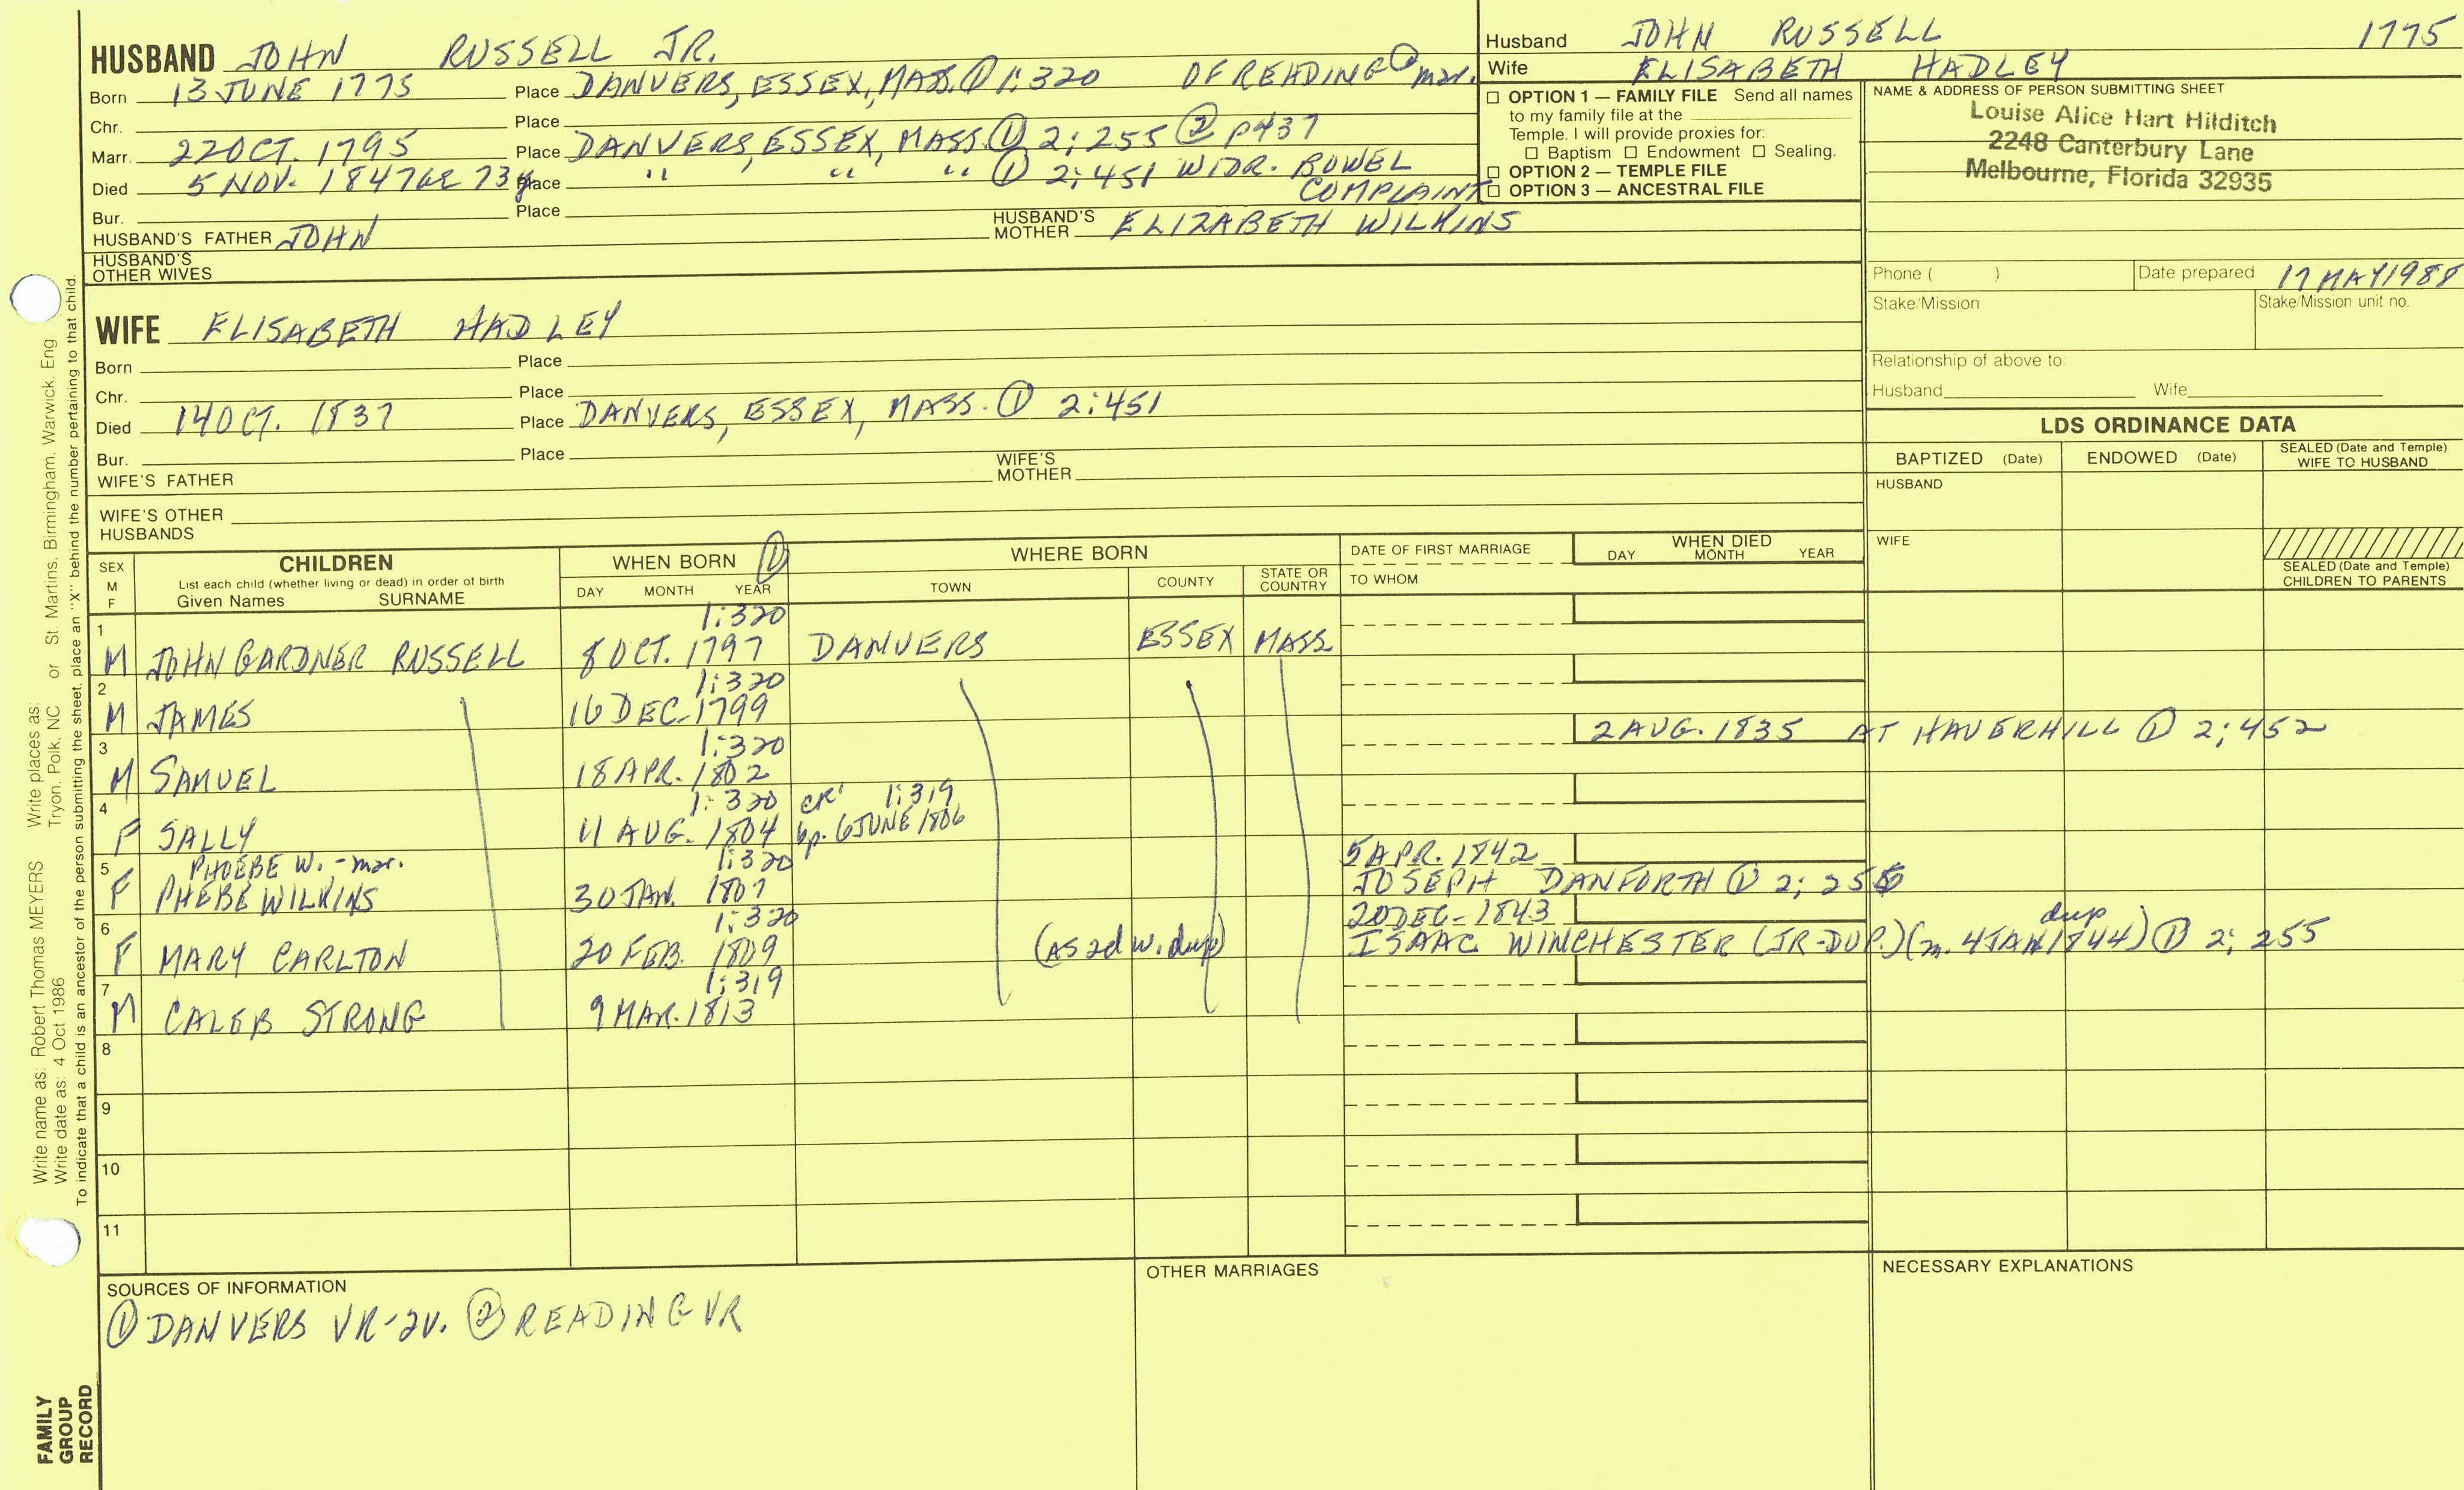 HUSBAND JOHN RUSSELL JR.
Born 13 JUNE 1775 Place DANVERS, ESSEX, MASS. ① 1:320 OF READING mar.
Chr. Place
Marr. 22 OCT. 1795 Place DANVERS, ESSEX, MASS. ① 2:255 ② P437
Died 5 NOV. 1847 73y Place " " " ① 2:451 WIDR. BOWEL COMPLAINT
Bur. Place
HUSBAND'S FATHER JOHN HUSBAND'S MOTHER ELIZABETH WILKINS
HUSBAND'S OTHER WIVES
Husband JOHN RUSSELL 1775
Wife ELISABETH HADLEY
☐ OPTION 1 — FAMILY FILE Send all names
to my family file at the
Temple. I will provide proxies for:
☐ Baptism ☐ Endowment ☐ Sealing.
☐ OPTION 2 — TEMPLE FILE
☐ OPTION 3 — ANCESTRAL FILE
NAME & ADDRESS OF PERSON SUBMITTING SHEET
Louise Alice Hart Hilditch
2248 Canterbury Lane
Melbourne, Florida 32935
Phone ( ) Date prepared 17 MAY 1988
Stake/Mission Stake/Mission unit no.
Relationship of above to:
Husband Wife
WIFE ELISABETH HADLEY
Born Place
Chr. Place
Died 14 OCT. 1837 Place DANVERS, ESSEX, MASS. ① 2:451
Bur. Place
WIFE'S FATHER WIFE'S MOTHER
WIFE'S OTHER HUSBANDS
LDS ORDINANCE DATA
BAPTIZED (Date) ENDOWED (Date) SEALED (Date and Temple) WIFE TO HUSBAND
HUSBAND
WIFE
SEALED (Date and Temple) CHILDREN TO PARENTS
SEX M F
CHILDREN
List each child (whether living or dead) in order of birth
Given Names SURNAME
WHEN BORN ①
DAY MONTH YEAR
WHERE BORN
TOWN COUNTY STATE OR COUNTRY
DATE OF FIRST MARRIAGE
TO WHOM
WHEN DIED
DAY MONTH YEAR
1:320
1 M JOHN GARDNER RUSSELL 8 OCT. 1797 DANVERS ESSEX MASS.
1:320
2 M JAMES 16 DEC. 1799
1:320 2 AUG. 1835 AT HAVERHILL ① 2:452
3 M SAMUEL 18 APR. 1802
1:320 CR' 1:319
4 F SALLY 11 AUG. 1804 bp. 6 JUNE 1806
PHOEBE W. - mar. 1:320 5 APR. 1842
5 F PHEBE WILKINS 30 JAN. 1807 JOSEPH DANFORTH ① 2:255
1:320 20 DEC. 1843 dup
6 F MARY CARLTON 20 FEB. 1809 (AS 2d w. dup) ISAAC WINCHESTER (JR-DUP.) (m. 4 JAN 1844) ① 2:255
1:319
7 M CALEB STRONG 9 MAR. 1813
8
9
10
11
SOURCES OF INFORMATION
① DANVERS VR-2V. ② READING VR
OTHER MARRIAGES
NECESSARY EXPLANATIONS
Write name as: Robert Thomas MEYERS Write places as: St. Martins, Birmingham, Warwick, Eng.
Write date as: 4 Oct 1986 Tryon, Polk, NC or
To indicate that a child is an ancestor of the person submitting the sheet, place an "X" behind the number pertaining to that child.
FAMILY
GROUP
RECORD